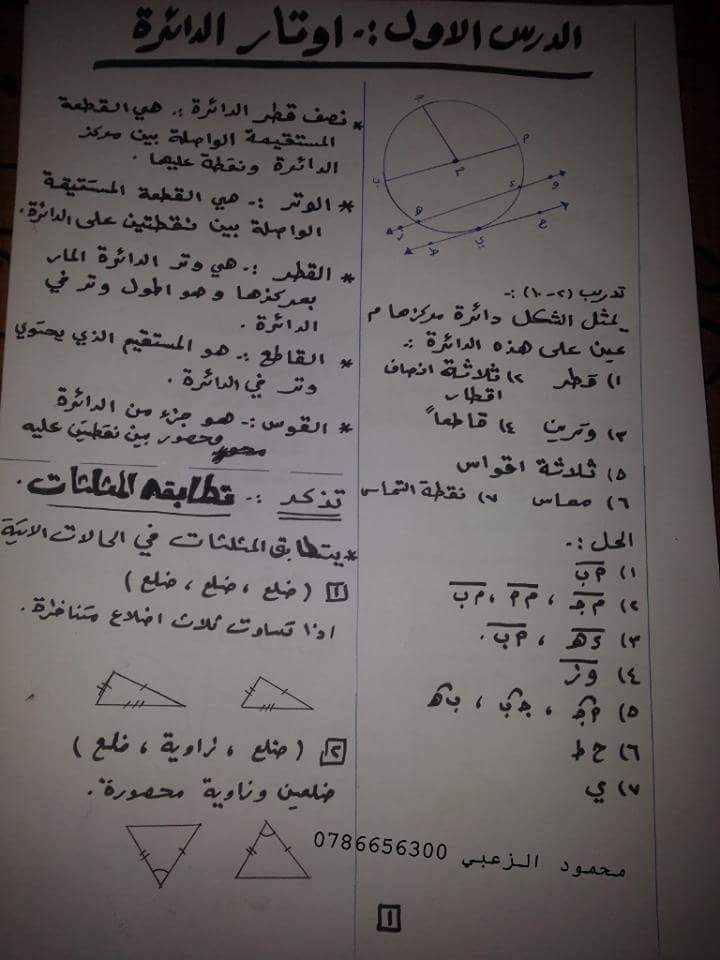 الدرس الاول :. اوتار الدائرة
تدريب (٢-١٠) :-
يمثل الشكل دائرة مركزها م
عين على هذه الدائرة :.
١) قطر ٢) ثلاثة انصاف اقطار
٣) وترين ٤) قاطعاً
٥) ثلاثة اقواس
٦) مماس ٧) نقطة التماس
الحل :.
١) أب
٢) مجـ ، مأ ، مب
٣) دهـ ، أب .
٤) وز
٥) أجـ ، جب ، بهـ
٦) ح ط
٧) ي
محمود الزعبي 0786656300
* نصف قطر الدائرة :. هي القطعة
المستقيمة الواصلة بين مركز
الدائرة ونقطة عليها .
* الوتر :- هي القطعة المستقيمة
الواصلة بين نقطتين على الدائرة.
* القطر :- هي وتر الدائرة المار
بمركزها وهو اطول وتر في
الدائرة .
* القاطع :- هو المستقيم الذي يحتوي
وتر في الدائرة .
* القوس :- هو جزء من الدائرة
محصور بين نقطتين عليه
تذكر :. تطابق المثلثات .
* يتطابق المثلثات في الحالات الاتية
١ ( ضلع ، ضلع ، ضلع )
اذا تساوت ثلاث اضلاع متناظرة .
٢ ( ضلع ، زاوية ، ضلع )
ضلعين وزاوية محصورة .
١